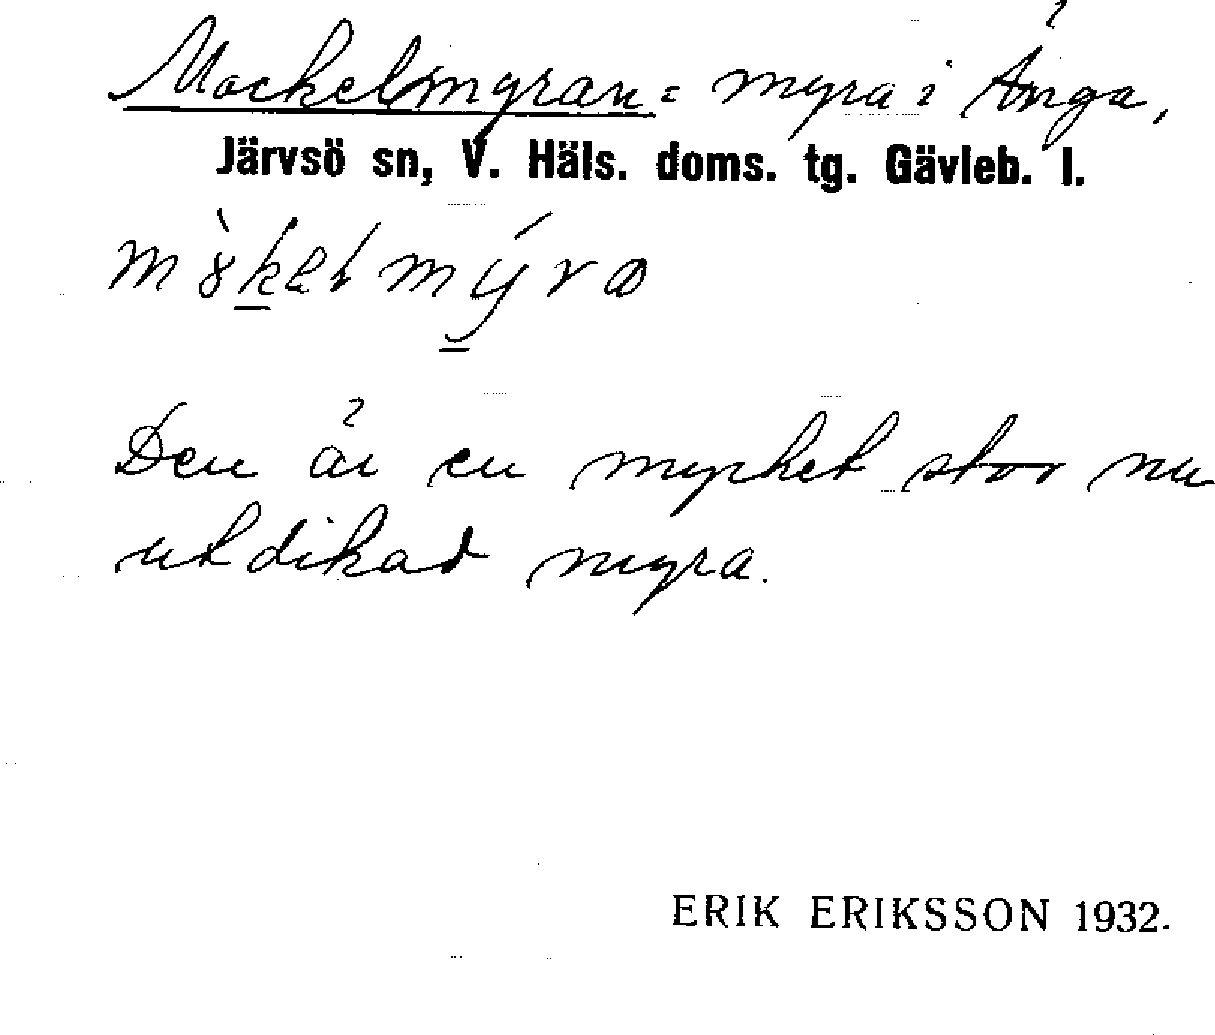 Mackelmyran = myra i Änga,
Järvsö sn, V. Häls. doms. tg. Gävleb. l.
Den är en mycket stor nu
utdikad myra.
ERIK ERIKSSON 1932.